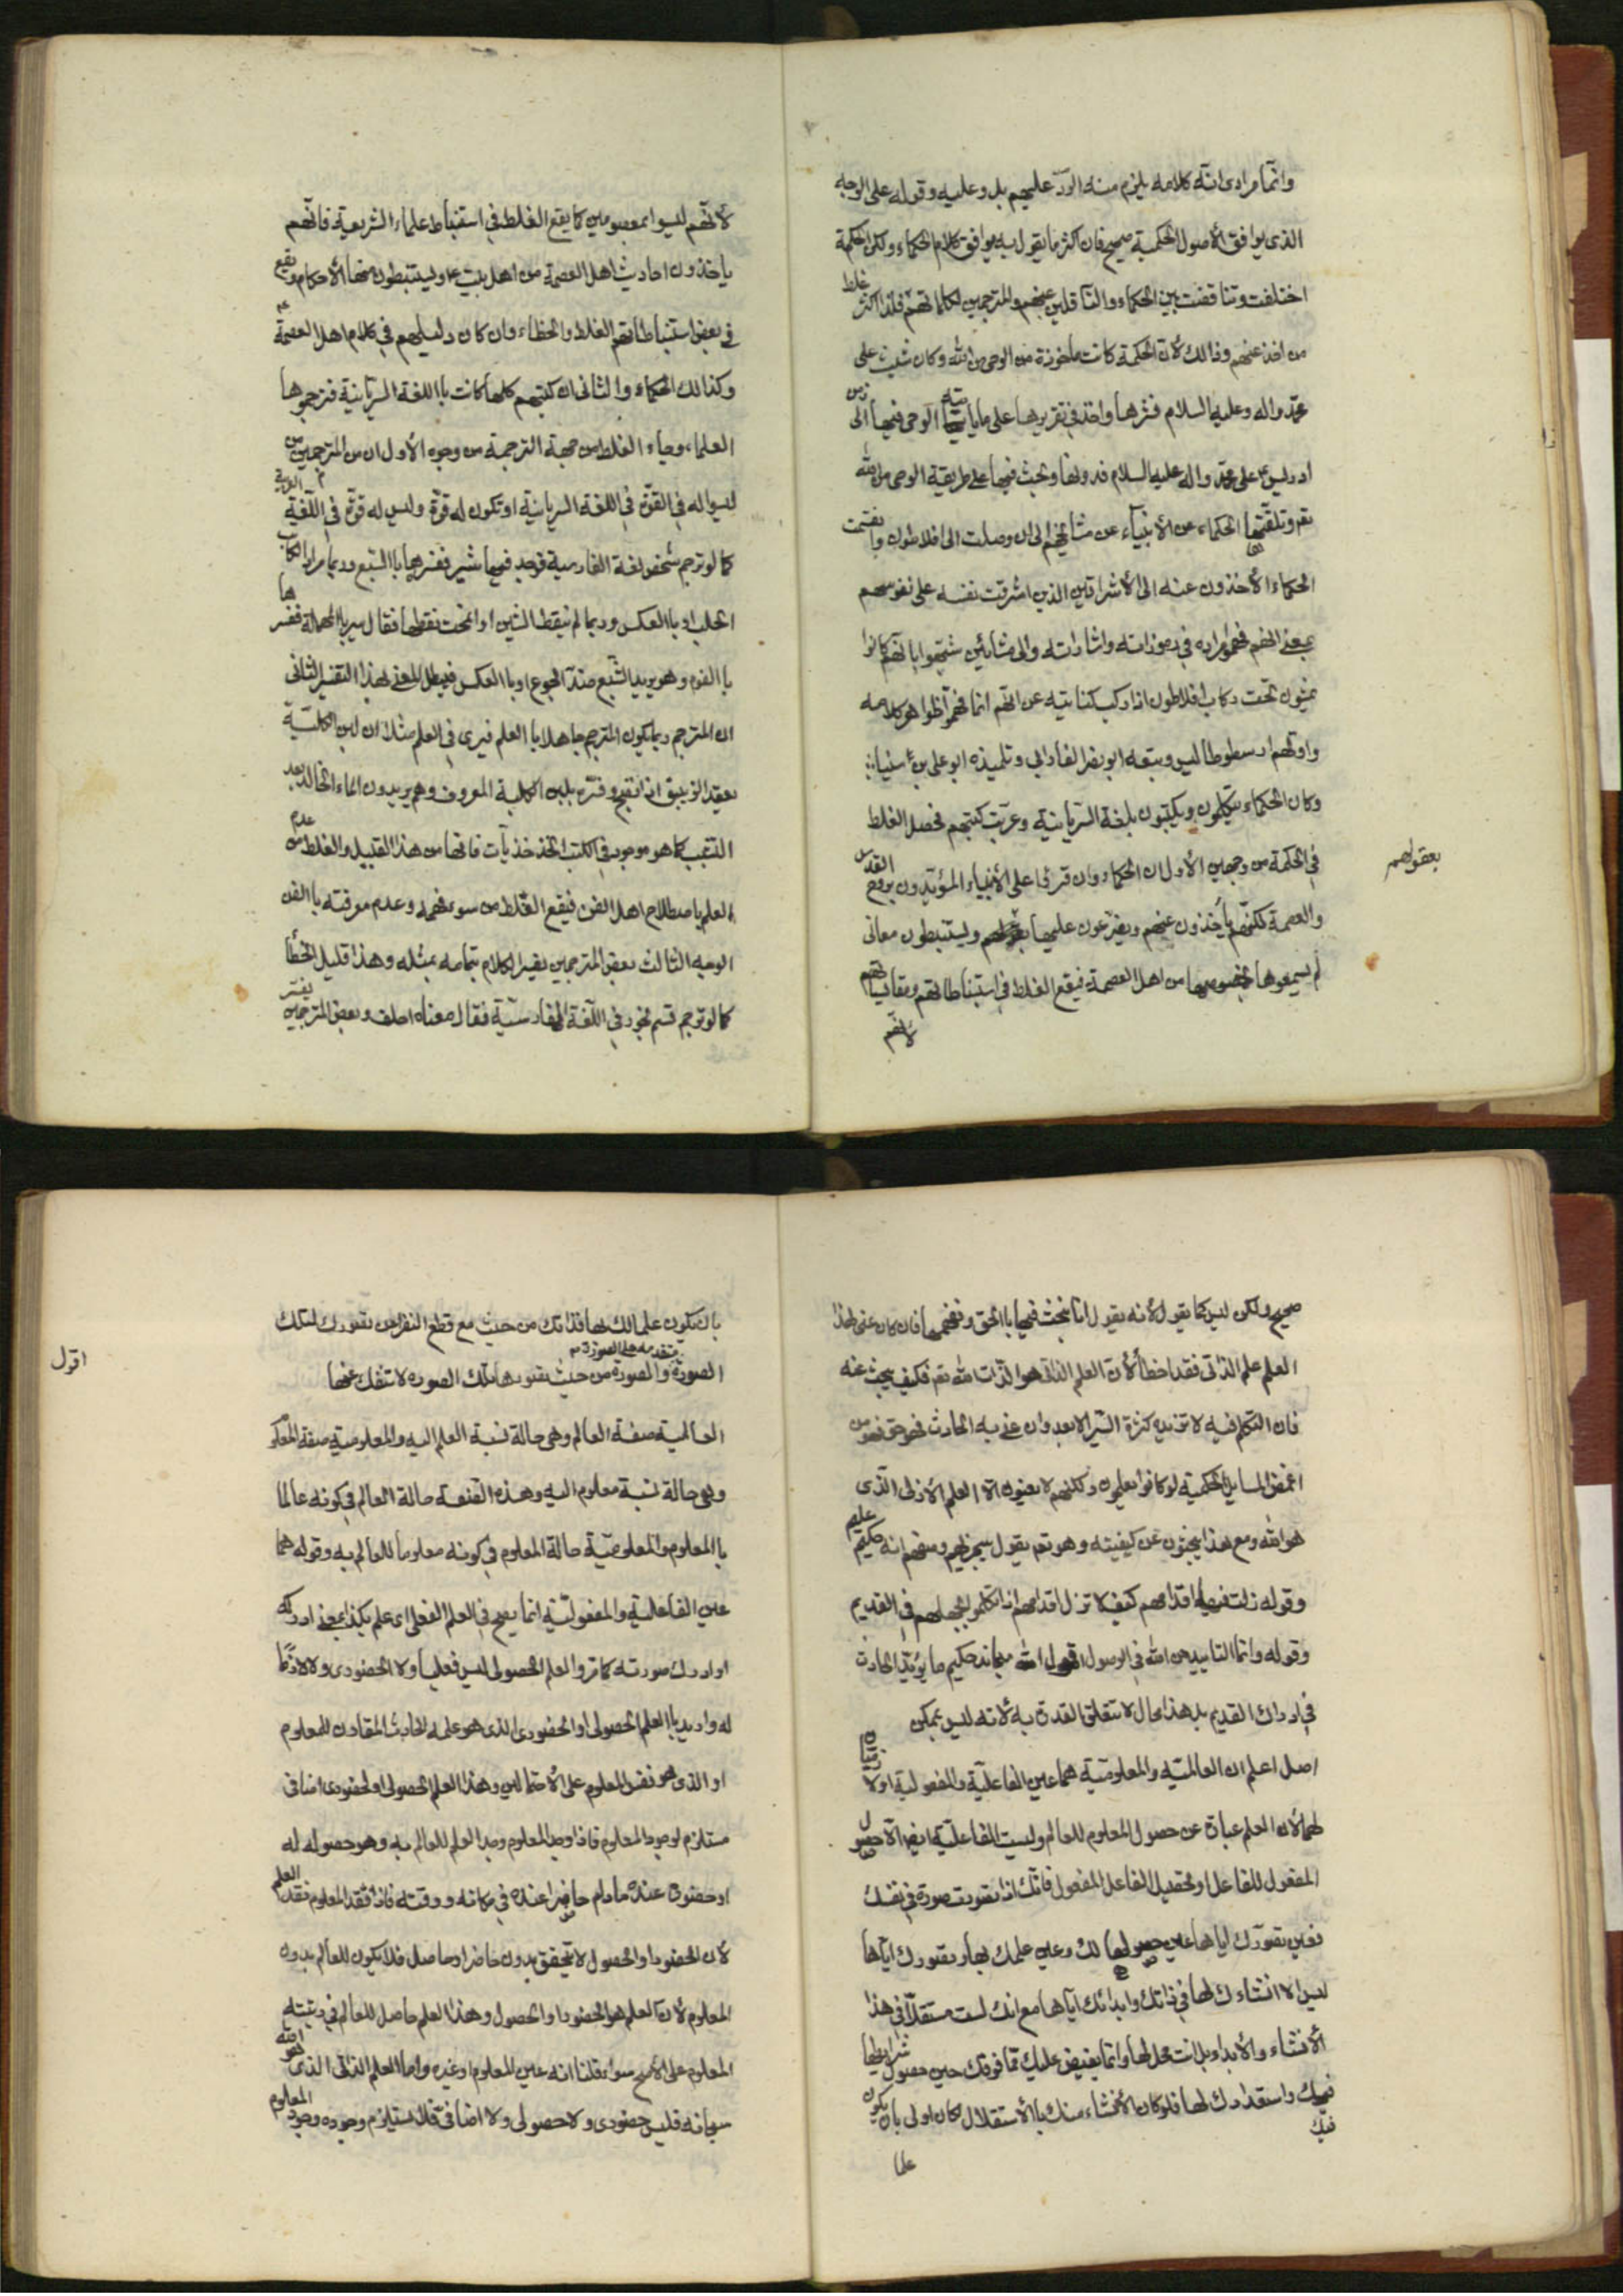 وانما مرادى انّه كلامه يلزم منه الردّ عليهم بل وعليه وقوله على الوجه
الذى يوافق الأصول الحكمية صحيح فان اكثر ما يقول به يوافق كلام الحكماء ولكن الحكمة
اختلفت وتناقضت بين الحكماء والناقلين عنهم والمترجمين لكلماتهم فلذا اكثر غلط
من اخذ عنهم وذالك لأن الحكمة كانت مأخوذة من الوحى من الله وكان شيث على
محمد واله وعليه السلام فسّرها واخذ فى تقريرها على ما يأتيه الوحى فيها الى زمن
ادريس ع على محمد واله عليه السلام فدونها وبحث فيها على طريقة الوحى من الله
تعم وتلقتها الحكماء عن الأنبياء عن مشايخهم الى ان وصلت الى افلاطون وانقسمت
الحكماء الأخذون عنه الى الأشراقيين الذين اشرقت نفسه على نفوسهم
بمعنى انهم فهموا مراده فى رموزاته واشاراته والى مشائين سُمّوا بانهم كانوا
يمشون تحت ركاب افلاطون اذا ركب كناية عن انّهم انما فهموا ظواهر كلامه
واولهم ارسطوطاليس وتبعه ابو نصر الفارابي وتلميذه ابو على بن اسيناء
وكان الحكماء يتكلمون ويكتبون بلغة السريانية وعربت كتبهم فحصل الغلط
فى الحكمة من وجهين الأول ان الحكماء وان قرئوا على الأنبياء المؤيّدون بروح القدس
والعصمة لكنّهم يأخذون عنهم ويفرّعون عليها بعقولهم ويستنبطون معانى
بعقولهم
لم يسمعوها بخصوصها من اهل العصمة فيقع الغلط فى استنباطاتهم ومقايساتهم
لأنهم
لأنّهم ليسوا بمعصومين كما يقع الغلط فى استنباط علماء الشريعة فانّهم
يأخذون احاديث اهل العصمة من اهل بيت ع ويستنبطون منها الأحكام ويقع
فى بعض استنباطاتهم الغلط والخطاء وان كان دليلهم فى كلام اهل العصمة ع
وكذالك الحكماء والثانى ان كتبهم كلها كانت باللغة السريانية فترجموها
العلماء وجاء الغلط من جهة الترجمة من وجوه الأول ان من المترجمين من
ليس له فى القوّة فى اللغة السريانية او تكون له قوّة وليس له قوّة فى اللّغة العربية
كما لو ترجم شخص لغة الفارسية فوجد فيها شير ففسّرها بالسّبع وربما مراد الكاتب
الحليب او بالعكس وربما لم ينقط الشين او انمحت نقطها فقال سير بالمهملة ففسرها
بالثوم وهو يريد الشّبع ضدّ الجوع او بالعكس فيبطل المعنى بهذا التفسير الثانى
ان المترجم ربما يكون المترجم جاهلا بالعلم فيرى فى العلم مثلا ان لبن الكلبة
يعقد الزيبق اذا نقع وفسّر بلبن الكلبة المعروف وهم يريدون الماء الخالد بعد
التشبيب كما هو موجود فى الكتب فانها من هذا القبيل والغلط من عدم
العلم باصطلاح اهل الفن فيقع الغلط من سوء فهمه وعدم معرفته بالفن
الوجه الثالث بعض المترجمين يفسّر الكلام بتمامه بمثله وهذا قليل الخطأ
كما لو ترجم قسم بخور فى اللّغة الفارسيّة فقال معناه احلف وبعض المترجمين يفسر
صحيح ولكن ليس كما يقول لأنه يقول انا نبحث فيها بالحق ونفهمها فان كان عنى بهذا
العلم علم الذاتى فقد اخطأ لأن العلم الذاتى هو الذّات الله تعم فكيف يبحث عنه
فان التكلم فيه لا تزيد كثرة السّير الا بعدا وان عنى به الحادث فهو حق فهو من
اغمض المسايل الحكمية لو كانوا يعلمون ولكنهم لا يعنون الّا العلم الأزلى الّذى
هو الله ومع هذا يبحثون عن كيفيته وهو تعم يقول سيجزيهم وصفهم انه حكيم عليم
وقوله زلت فيها اقدامهم كيف لا تزل اقدامهم اذا تكلموا بجهلهم فى القديم
وقوله وانما التاييد من الله فى الوصول اقول الله سبحانه حكيم ما يؤيّد الحادث
فى ادراك القديم بل هذا محال لا تتعلق القدرة به لأنه ليس بممكن
اصل اعلم ان العالميّة والمعلوميّة هما عين الفاعليّة والمفعوليّة اولا زمتان
لهما لأن العلم عبارة عن حصول المعلوم للعالم وليست الفاعليّة ايضا الّا حصول
المفعول للفاعل او تحصيل الفاعل المفعول فانّك اذا تصورت صورة فى نفسك
فعين تصوّرك اياها عين حصولها لك وعين علمك بها وتصورك ايّاها
ليس الا انشاءك لها فى ذاتك وابدائك ايّاها مع انك لست مستقلّا فى هذا
الأنشاء والأبداء بل انت محل لها وانما يفيض عليك ممّا فوقك حين حصول شرايطها
فيك واستعدادك لها فلو كان الأنشاء منك بالأستقلال لكان اولى بان يكون
فيك
علما
بان يكون علما لك بها فذاتك من حيث مع قطع النظر عن تصورك لتلك
الصورة متقدمه على الصورة والصورة من حيث تصورها تلك الصورة لا تنفك عنها
اقول
العالمية صفة العالم وهى حالة نسبة العلم اليه والمعلومية صفة المعلوم
وهى حالة نسبة معلوم اليه وهذه الصفة حالة العالم فى كونه عالما
بالمعلوم والمعلوميّة حالة المعلوم فى كونه معلوما للعالم به وقوله هما
عين الفاعلية والمفعوليّة انما يصح فى العلم الفعلى اى علم بكذا بمعنى ادركه
او ادرك صورته كما تر والعلم الحصولى ليس فعليا ولا الحضورى ولا لازمًا
له واريد بالعلم الحصولى او الحضورى الذى هو علمه الحادث المقارن للمعلوم
او الذى هو نفس المعلوم على الأحتمالين وهذا العلم الحصولى او لحضورى اضافى
مستلزم لوجود المعلوم فاذا وجد المعلوم وجد العلم للعالم به وهو حصوله له
او حضوره عنده ما دام حاضرا عنده فى مكانه ووقته فاذا فقد المعلوم فقد العلم
لأن الحضور او الحصول لا يتحقق بدون حاضر او حاصل فلا يكون للعالم بدون
المعلوم لأن العلم هو الحضور او الحصول وهذا العلم حاصل للعالم فى رتبته
المعلوم على الأصح سواء قلنا انه عين المعلوم او غيره واما العلم الذاتى الذى هو الله
سبحانه فليس حضورى ولا حصولى ولا اضافىّ فلا يستلزم وجوده وجود المعلوم